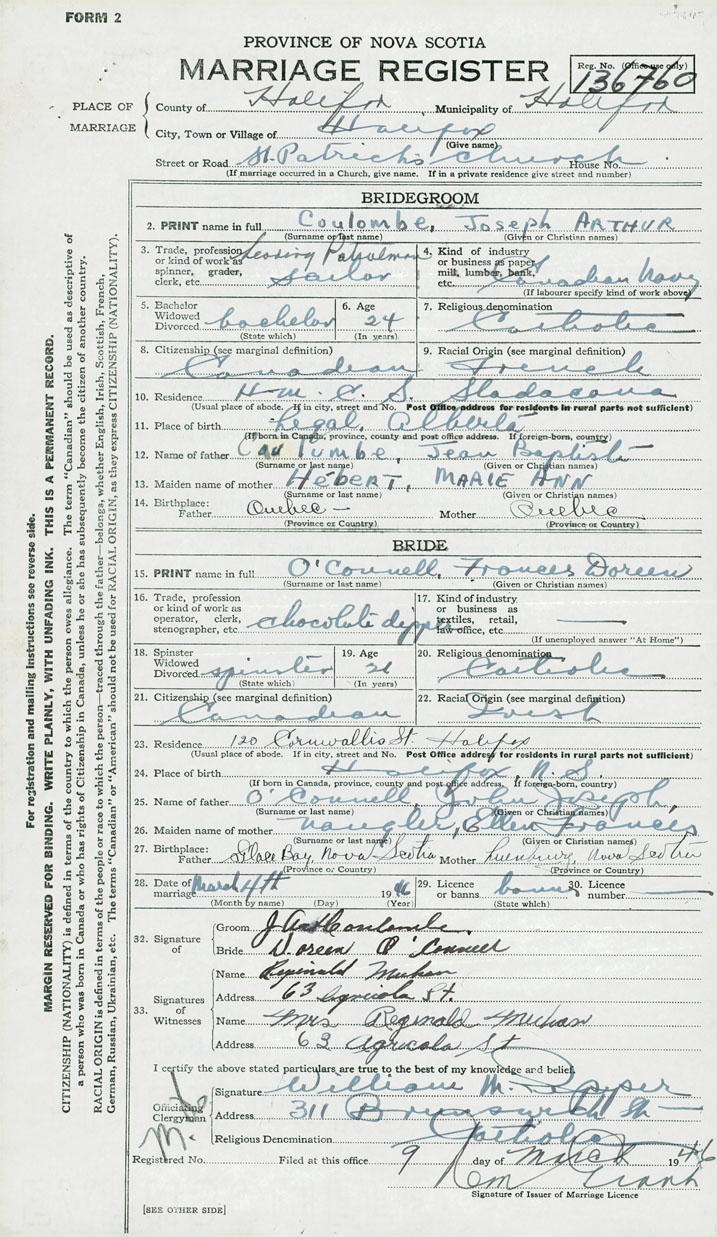 FORM 2
PROVINCE OF NOVA SCOTIA
MARRIAGE REGISTER
Reg. No. (Office use only)
136760
PLACE OF MARRIAGE
County of Halifax Municipality of Halifax
City, Town or Village of Halifax
(Give name)
Street or Road St. Patrick's Church House No.
(If marriage occurred in a Church, give name. If in a private residence give street and number)
BRIDEGROOM
2. PRINT name in full Coulombe, Joseph ARTHUR
(Surname or last name) (Given or Christian names)
3. Trade, profession or kind of work as spinner, grader, clerk, etc. Leading Patrolman sailor
4. Kind of industry or business as paper mill, lumber, bank, etc. Canadian Navy
(If labourer specify kind of work above)
5. Bachelor Widowed Divorced bachelor
(State which)
6. Age 24
(In years)
7. Religious denomination Catholic
8. Citizenship (see marginal definition) Canadian
9. Racial Origin (see marginal definition) French
10. Residence H.M.C.S. Stadacona
(Usual place of abode. If in city, street and No. Post Office address for residents in rural parts not sufficient)
11. Place of birth Legal, Alberta
(If born in Canada, province, county and post office address. If foreign-born, country)
12. Name of father Jean Baptist
(Surname or last name) (Given or Christian names)
13. Maiden name of mother Hébert, MARIE ANN
(Surname or last name) (Given or Christian names)
14. Birthplace: Father Quebec Mother Quebec
(Province or Country) (Province or Country)
BRIDE
15. PRINT name in full O'Connell, Frances Doreen
(Surname or last name) (Given or Christian names)
16. Trade, profession or kind of work as operator, clerk, stenographer, etc. chocolate dipper
17. Kind of industry or business as textiles, retail, law office, etc.
(If unemployed answer "At Home")
18. Spinster Widowed Divorced spinster
(State which)
19. Age 21
(In years)
20. Religious denomination Catholic
21. Citizenship (see marginal definition) Canadian
22. Racial Origin (see marginal definition) Irish
23. Residence 120 Cornwallis St. Halifax
(Usual place of abode. If in city, street and No. Post Office address for residents in rural parts not sufficient)
24. Place of birth Halifax, N. S.
(If born in Canada, province, county and post office address. If foreign-born, country)
25. Name of father O'Connell, John Joseph,
(Surname or last name) (Given or Christian names)
26. Maiden name of mother Naugler, Ellen Frances
(Surname or last name) (Given or Christian names)
27. Birthplace: Father Glace Bay, Nova Scotia Mother Lunenburg, Nova Scotia
(Province or Country) (Province or Country)
28. Date of marriage March 4th 1946
(Month by name) (Day) (Year)
29. Licence or banns banns
(State which)
30. Licence number
32. Signature of
Groom J. Arth Coulombe.
Bride Doreen O'Connell
33. Signatures of Witnesses
Name Reginald Meehan
Address 63 Agricola St.
Name Mrs Reginald Meehan
Address 63 Agricola St
I certify the above stated particulars are true to the best of my knowledge and belief.
Officiating Clergyman
Signature William M.
Address 311 Brunswick St
Religious Denomination Catholic
Registered No. Filed at this office 9 day of March 1946
Grant
Signature of Issuer of Marriage Licence
[SEE OTHER SIDE]
For registration and mailing instructions see reverse side.
MARGIN RESERVED FOR BINDING. WRITE PLAINLY, WITH UNFADING INK. THIS IS A PERMANENT RECORD.
CITIZENSHIP (NATIONALITY) is defined in terms of the country to which the person owes allegiance. The term "Canadian" should be used as descriptive of
a person who was born in Canada or who has rights of Citizenship in Canada, unless he or she has subsequently become the citizen of another country.
RACIAL ORIGIN is defined in terms of the people or race to which the person—traced through the father—belongs, whether English, Irish, Scottish, French,
German, Russian, Ukrainian, etc. The terms "Canadian" or "American" should not be used for RACIAL ORIGIN, as they express CITIZENSHIP (NATIONALITY).